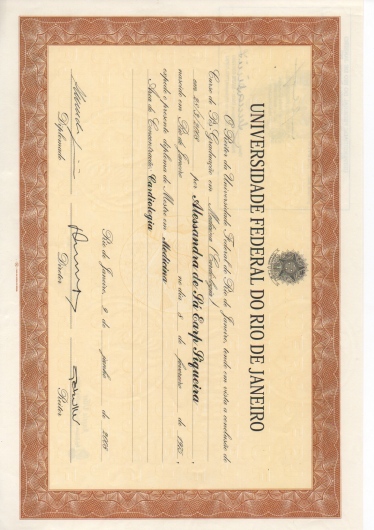 UNIVERSIDADE FEDERAL DO RIO DE JANEIRO
O Reitor da Universidade Federal do Rio de Janeiro, tendo em vista a conclusão do
Curso de Pós-Graduação em Medicina (Cardiologia)
em 2008 por Alessandra de Sá Earp Siqueira
nascido em Rio de Janeiro no dia 5 de fevereiro de 1975,
expede o presente diploma de Mestre em Medicina
Área de Concentração: Cardiologia
Rio de Janeiro, 2 de junho de 2008
Diplomado Diretor Reitor